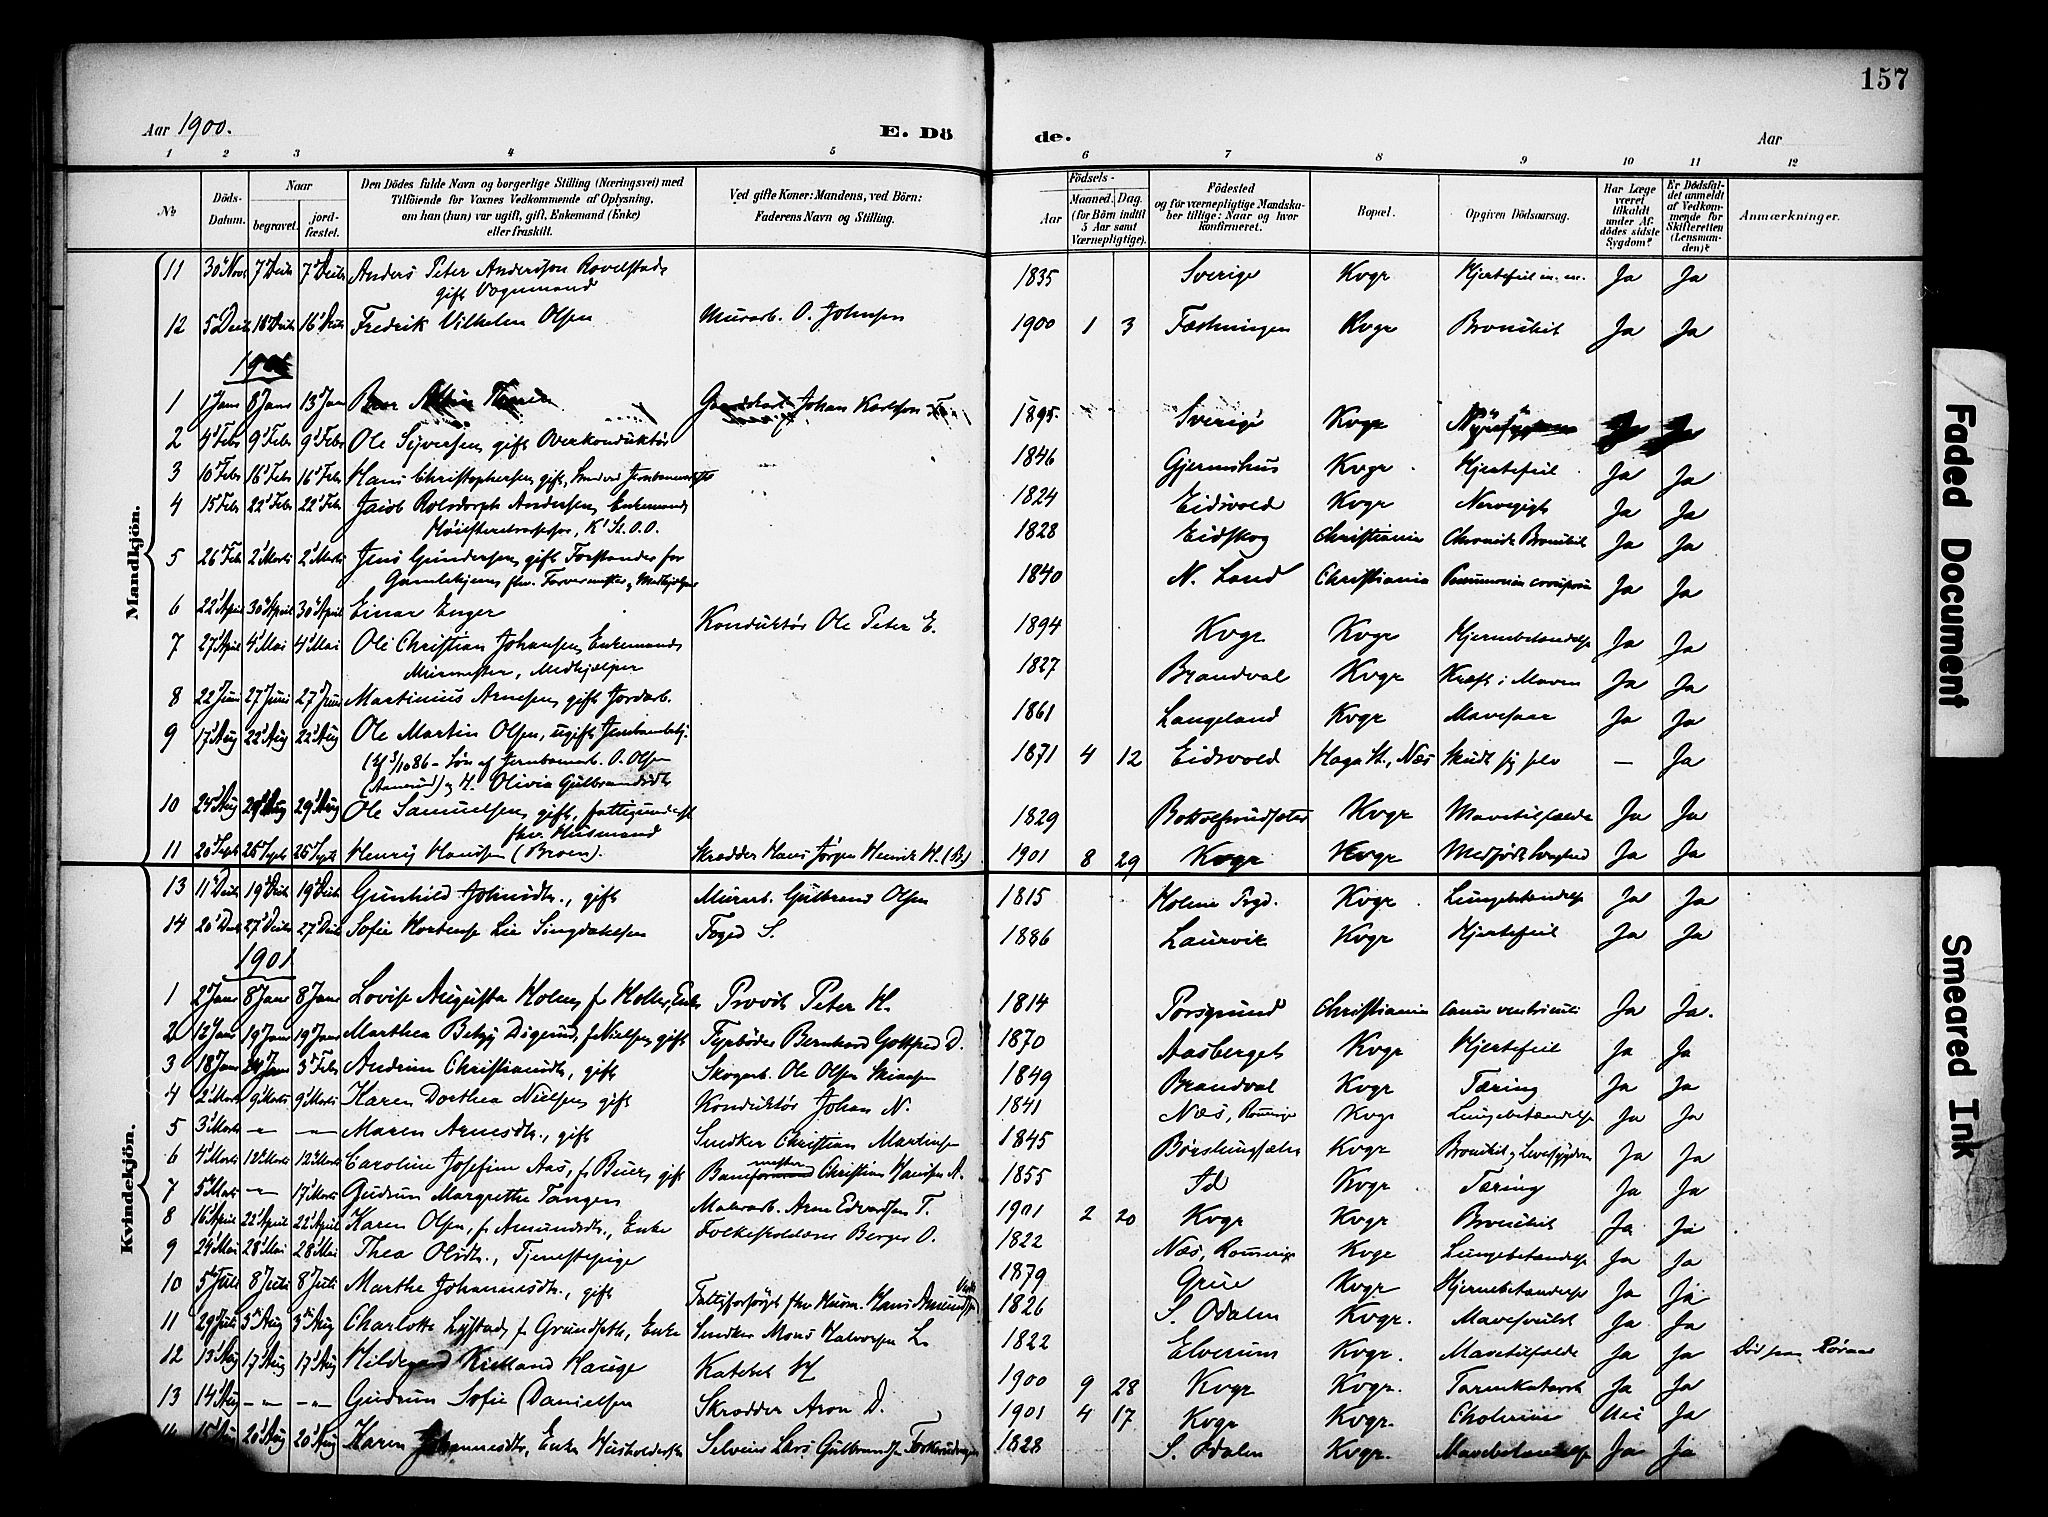 157
Aar 1900.
E. Dö
de.
Aar
1 2 3 4 5 6 7 8 9 10 11 12
No
Döds-Datum.
Naar
begravet.
jord-fæstet.
Den Dödes fulde Navn og borgerlige Stilling (Næringsvei) med
Tilföiende for Voxnes Vedkommende af Oplysning,
om han (hun) var ugift, gift, Enkemand (Enke)
eller fraskilt.
Ved gifte Koner: Mandens, ved Börn:
Faderens Navn og Stilling.
Födsels-
Aar
Maaned. Dag.
(for Börn indtil
5 Aar samt
Værnepligtige).
Födested
og for værnepligtige Mandska-
ber tillige: Naar og hvor
konfirmeret.
Bopæl.
Opgiven Dödsaarsag.
Har Læge
været
tilkaldt
under Af-
dödes sidste
Sygdom?
Er Dödsfal-
det anmeldt
af Vedkom-
mende for
Skifteretten
(Lensman-
den)?
Anmærkninger.
Mandkjön.
11 30 Nov 7 Decbr 7 Decbr Anders Peter Andersson Rovelstad, 1835 Sverige Kvgr Hjertefeil m.m. Ja Ja
gift Vognmand
12 5 Decbr 16 Decbr 16 Decbr Fredrik Vilhelm Olsen Murarb. O. Johnsen 1900 1 3 Fæstningen Kvgr Bronkit Ja Ja
1901
1 1 Jan 8 Jan 13 Jan Johan Karlsson 1895 Sverige Kvgr
2 4 Febr 9 Febr 9 Febr Ole Syversen, gift Overkonduktør 1846 Gjermshus Kvgr Hjertefeil Ja Ja
3 10 Febr 16 Febr 16 Febr Hans Christophersen, gift, 1824 Eidsvold Kvgr Ja Ja
4 15 Febr 22 Febr 22 Febr Jacob Andersen, Enkemand 1828 Eidskog Christiania Chronisk Bronkit Ja Ja
K' St. O. O.
5 26 Feb 2 Marts 2 Marts Jens Gundersen, gift Forstander for 1840 N. Land Christiania Ja Ja
Gamlehjem, fhv. Farvermester og Medhjælper
6 22 April 30 April 30 April Einar Enger Konduktør Ole Peter E. 1894 Kvgr Kvgr Hjernebetændelse Ja Ja
7 27 April 4 Mai 4 Mai Ole Christian Johansen, Enkemand 1827 Brandval Kvgr Kræft i Maven Ja Ja
Murmester, Medhjælper
8 22 Juni 27 Juni 27 Juni Martinius Arnesen, gift Jordarb. 1861 Langeland Kvgr Mavesaar Ja Ja
9 17 Aug 22 Aug 22 Aug Ole Martin Olsen, ugift 1871 4 12 Eidsvold Haga St., Næs Skudt sig selv — Ja
Søn af Jernbanearb. O. Olsen
Olivia Gulbrandsdtr
10 25 Aug 29 Aug 29 Aug Ole Samuelsen, gift, fattigunderst. 1829 Kvgr Mavetilfælde Ja Ja
fhv. Husmand
11 20 Septb 25 Septb 25 Septb Henry Hansen (Broen). Skrædder Hans Jørgen Henrik H. (B.) 1901 8 29 Kvgr Kvgr Medfødt Svaghed Ja Ja
Kvindekjön.
13 11 Decbr 19 Decbr 19 Decbr Gunhild Johnsdtr., gift Murarb. Gulbrand Olsen 1815 Holme Kvgr Lungebetændelse Ja Ja
14 20 Decbr 27 Decbr 27 Decbr Sofie Hortense Lie Singdahlsen Foged S. 1886 Laurvik Kvgr Hjertefeil Ja Ja
1901
1 2 Jan 8 Jan 8 Jan Lovise Augusta Holm, f. Holter, Enke Provst Peter H. 1814 Porsgrund Christiania Cancer ventriculi Ja Ja.
2 12 Jan 19 Jan 19 Jan Marthea Betzy Digerud, f. Nielsen, gift Fyrbøder Bernhard Gottfred D. 1870 Aasberget Kvgr Hjertefeil Ja Ja
3 18 Jan 24 Jan 3 Febr Andrine Christiansdtr, gift Skogarb. Ole Olsen Skiaasen 1849 Brandval Kvgr Tæring Ja Ja
4 2 Marts 9 Marts 9 Marts Karen Dorthea Nielsen, gift Konduktør Johan N. 1841 Næs, Romerige Kvgr Lungebetændelse Ja Ja
5 3 Marts — — Maren Arnesdtr., gift Snedker Christian Martinsen 1845 Kvgr Bronkit og Leversygdom Ja Ja
6 4 Marts 12 Marts 12 Marts Caroline Josefine Aas, f. Buer, gift Banemester Christian Hansen A. 1855 Id Kvgr Tæring Ja Ja
7 5 Marts — 17 Marts Gudrun Margrethe Tangen Malerarb. Arne Edvardsen T. 1901 2 20 Kvgr Kvgr Bronkit Ja Ja
8 16 April 22 April 22 April Karen Olsen, f. Amundsdtr., Enke Folkeskolelærer Berger O. 1822 Næs, Romerige Kvgr Lungebetændelse Ja Ja
9 24 Mai 28 Mai 28 Mai Thea Olsdtr., Tjenestepige 1879 Grue Kvgr Hjernebetændelse Ja Ja
10 5 Juli 8 Juli 8 Juli Marthe Johannesdtr., gift Fattigforsørget fhv. Husm. Hans Amundsen 1826 S. Odalen Kvgr. Mavesvulst Ja Ja
11 29 Juli 3 Aug 3 Aug Charlotte Lystad, f. Grundseth, Enke Snedker Mons Halvorsen L. 1822 Elverum Kvgr. Mavetilfælde Ja Ja Død paa Røraas
12 13 Aug 17 Aug 17 Aug Hildegard Kielland Hauge Katchet H 1900 9 28 Kvgr Kvgr. Tarmkatarrh Ja Ja
13 14 Aug — — Gudrun Sofie Danielsen Skrædder Aron D. 1901 4 17 Kvgr Kvgr. Cholerine Nei Ja
14 15 Aug 20 Aug 20 Aug Karen Johannesdtr, Enke Husholderske Selveier Lars Gulbrandsen 1828 S. Odalen Kvgr. Mavebetændelse Ja Ja
Faded Document
Smeared Ink